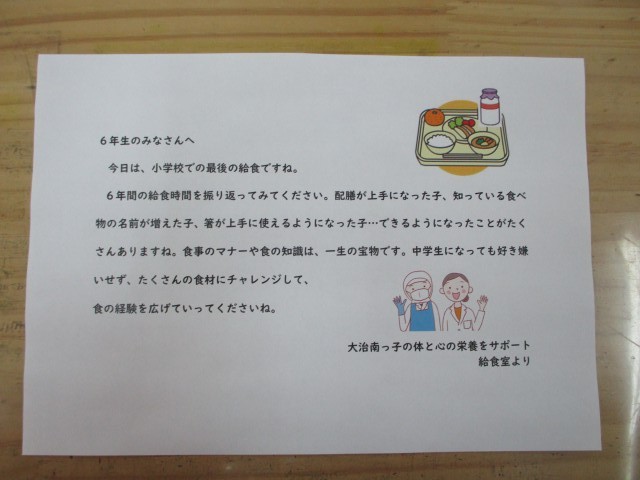 ６年生のみなさんへ
今日は、小学校での最後の給食ですね。
６年間の給食時間を振り返ってみてください。配膳が上手になった子、知っている食べ
物の名前が増えた子、箸が上手に使えるようになった子…できるようになったことがたく
さんありますね。食事のマナーや食の知識は、一生の宝物です。中学生になっても好き嫌
いせず、たくさんの食材にチャレンジして、
食の経験を広げていってくださいね。
大治南っ子の体と心の栄養をサポート
給食室より